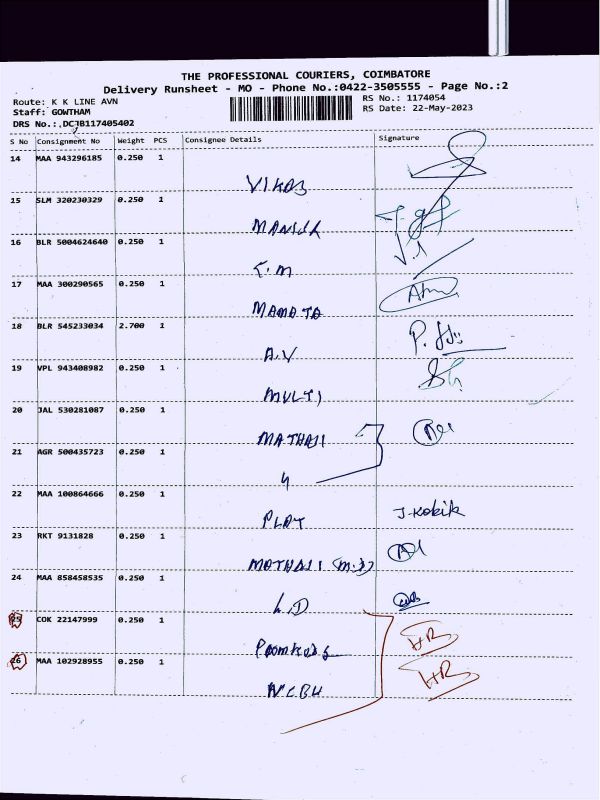 THE PROFESSIONAL COURIERS, COIMBATORE
Delivery Runsheet - MO - Phone No.:0422-3505555 - Page No.:2
Route: K K LINE AVN
RS No.: 1174054
Staff: GOWTHAM
RS Date: 22-May-2023
DRS No.:.DCJB117405402
S No Consignment No Weight PCS Consignee Details Signature
14 MAA 943296185 0.250 1
VIKAS
15 SLM 320230329 0.250 1
16 BLR 5004624640 0.250 1
T.M
17 MAA 300290565 0.250 1
MAMATA
18 BLR 545233034 2.700 1
A.V
19 VPL 943408982 0.250 1
MULTI
20 JAL 530281087 0.250 1
MATHAJI
21 AGR 500435723 0.250 1
22 MAA 100864666 0.250 1
PLAY
23 RKT 9131828 0.250 1
MATHAJI
24 MAA 858458535 0.250 1
L.D
25 COK 22147999 0.250 1
HB
26 MAA 102928955 0.250 1
HB